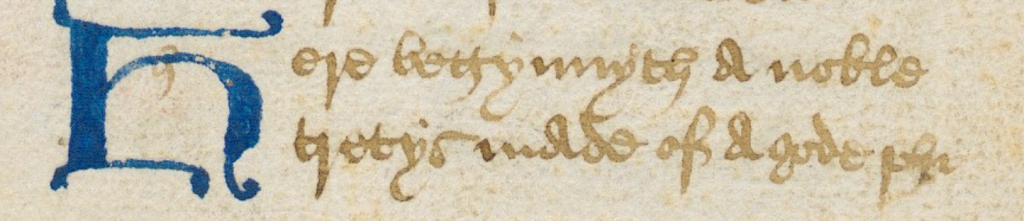 Here begynnyth A noble
tretys made of A gode phi